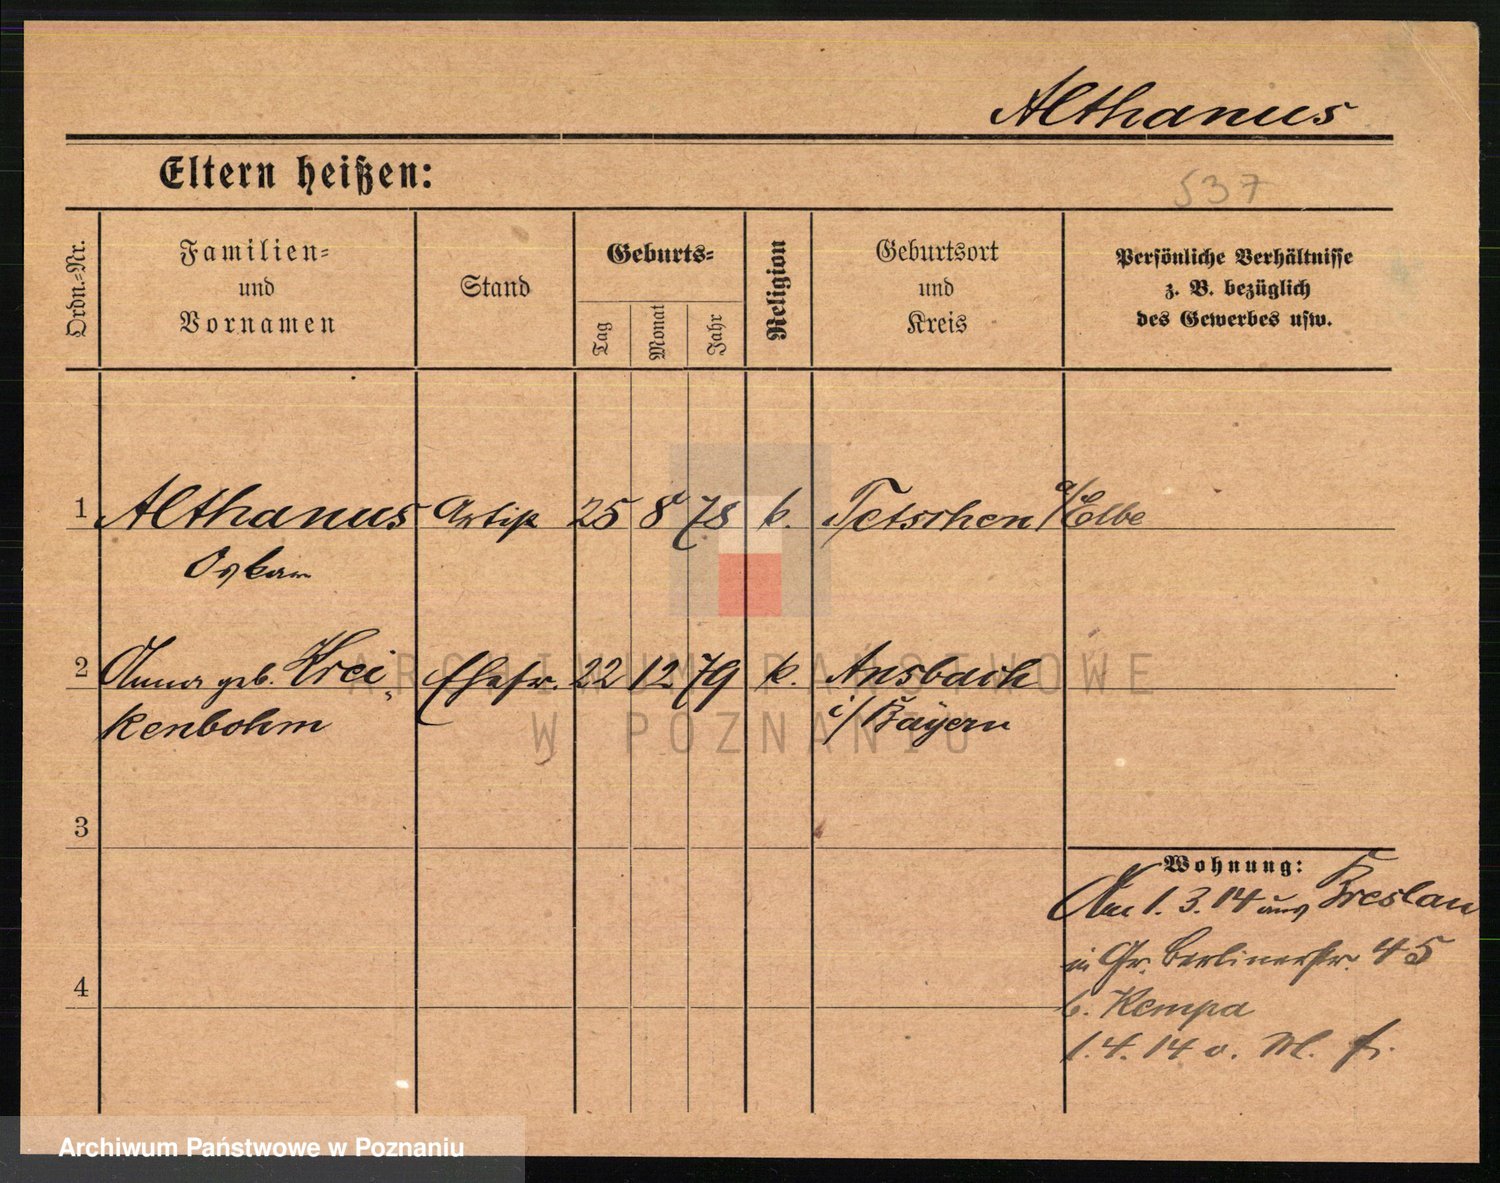 Althanus
Eltern heißen:
537
Ordn.=Nr.
Familien=
und
Vornamen
Stand
Geburts=
Tag
Monat
Jahr
Religion
Geburtsort
und
Kreis
Persönliche Verhältnisse
z. B. bezüglich
des Gewerbes usw.
1 Althanus Artist 25 8 78 k. Tetschen a/Elbe
Oskar
2 Anna geb. Krei 22 12 79 k. Ansbach
Ehefr.
kenbohm i/Bayern
3
Wohnung:
Am 1. 3. 14 aus Breslau
in Gr. Berlinerstr. 45
4
b. Kempa
1. 4. 14 v. M.
ARCHIWUM PAŃSTWOWE
W POZNANIU
Archiwum Państwowe w Poznaniu